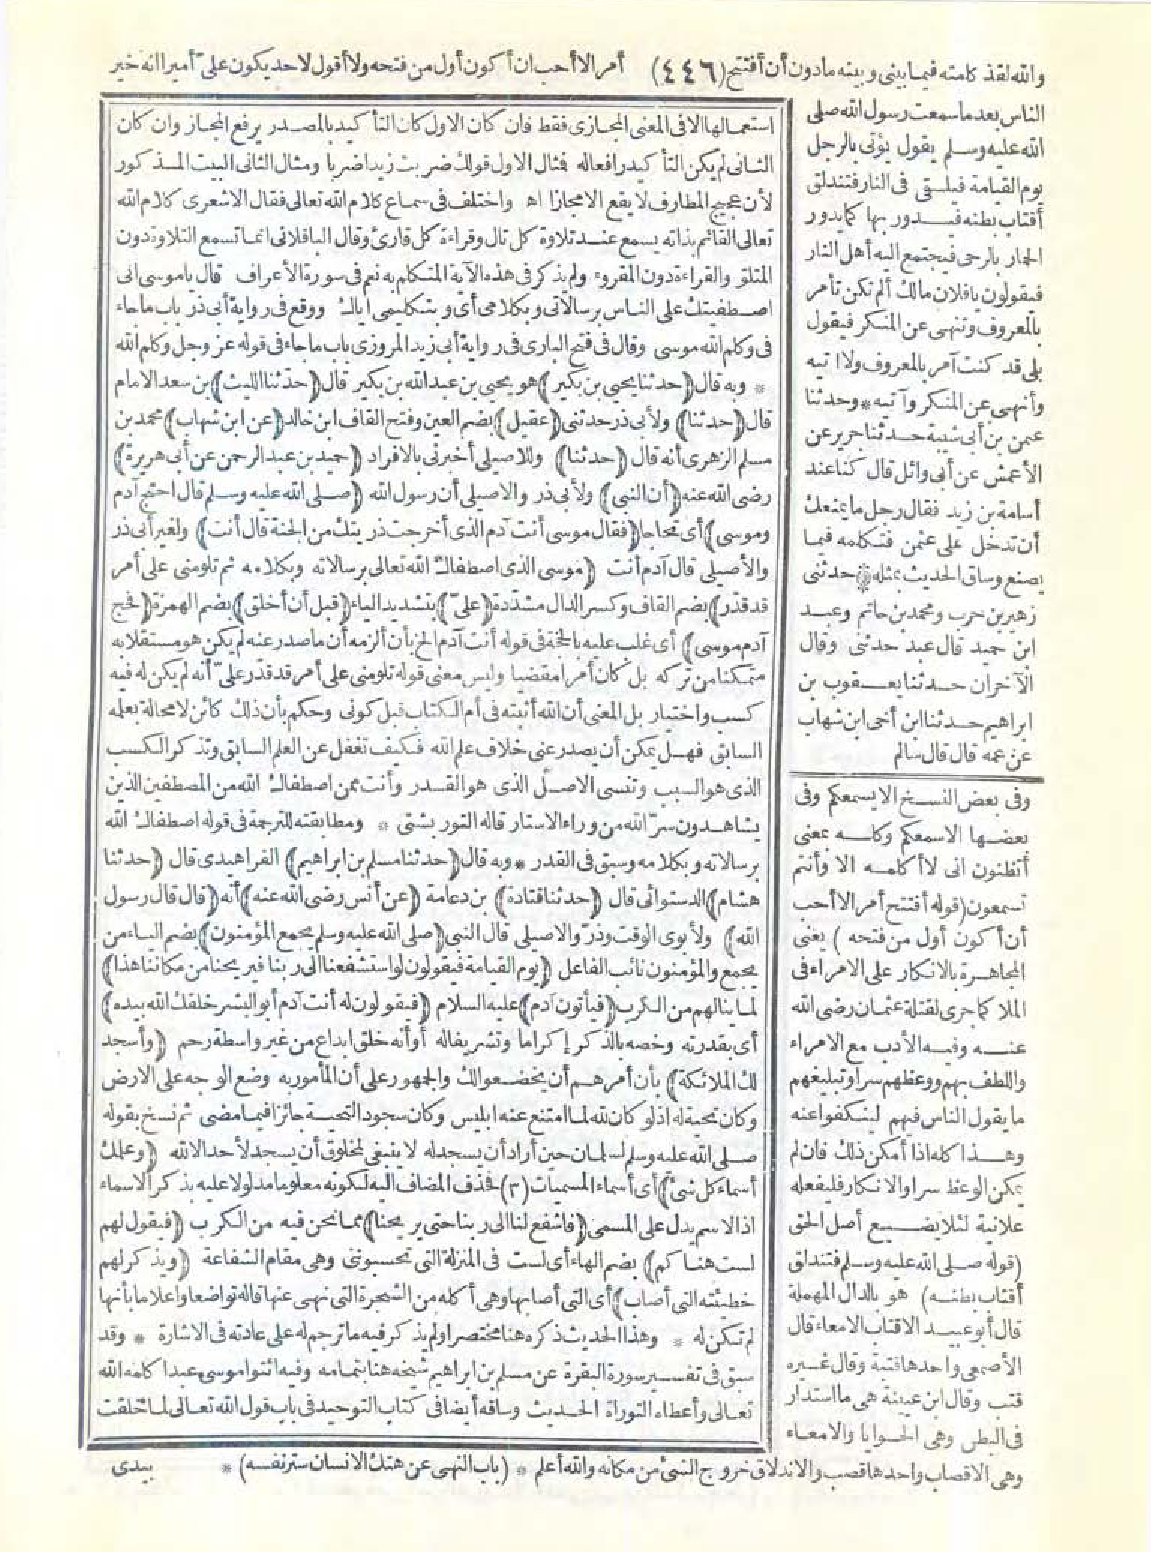 والله لقد كلمته فيما بيني وبينه مادون أن أفتتح (٤٤٦) أمر الا أحب ان أكون أول من فتحه ولا أقول لاحد يكون على أميرا انه خير
الناس بعد ما سمعت رسول الله صلى
الله عليه وسلم يقول يؤتى بالرجل
يوم القيامة فيلقى فى النار فتندلق
أقتاب بطنه فيدور بها كما يدور
الحمار بالرحى فيجتمع اليه أهل النار
فيقولون يا فلان مالك ألم تكن تأمر
بالمعروف وتنهى عن المنكر فيقول
بلى قد كنت آمر بالمعروف ولا آتيه
وأنهى عن المنكر وآتيه * وحدثنا
عثمن بن أبى شيبة حدثنا جرير عن
الأعمش عن أبى وائل قال كنا عند
أسامة بن زيد فقال رجل ما يمنعك
أن تدخل على عثمن فتكلمه فيما
يصنع وساق الحديث بمثله * حدثنى
زهير بن حرب ومحمد بن حاتم وعبد
ابن حميد قال عبد حدثنى وقال
الآخران حدثنا يعقوب بن
ابراهيم حدثنا ابن أخى ابن شهاب
عن عمه قال قال سالم
وفى بعض النسخ الا يسمعكم وفى
بعضها الاسمعكم وكله بمعنى
أتظنون انى لا أكلمه الا وأنتم
تسمعون (قوله أفتتح أمر الا أحب
أن أكون أول من فتحه) يعنى
المجاهرة بالانكار على الامراء فى
الملا كما جرى لقتلة عثمان رضى الله
عنه وفيه الأدب مع الامراء
واللطف بهم ووعظهم سرا وتبليغهم
ما يقول الناس فيهم لينكفوا عنه
وهذا كله اذا أمكن ذلك فان لم
يمكن الوعظ سرا والانكار فليفعله
علانية لئلا يضيع أصل الحق
(قوله صلى الله عليه وسلم فتندلق
أقتاب بطنه) هو بالدال المهملة
قال أبو عبيد الاقتاب الامعاء قال
الأصمعى واحدها قتبة وقال غيره
قتب وقال ابن عيينة هى ما استدار
فى البطن وهى الحوايا والامعاء
وهى الاقصاب واحدها قصب والاندلاق خروج الشئ من مكانه والله أعلم * (باب النهى عن هتك الانسان ستر نفسه) *
استعمالها الا فى المعنى المجازى فقط فان كان الاول كان التأكيد بالمصدر يرفع المجاز وان كان
الثانى لم يكن التأكيد رافعاله فمثال الاول قولك ضربت زيدا ضربا ومثال الثانى البيت المذكور
لأن عجيج المطارف لا يقع الا مجازا اه واختلف فى سماع كلام الله تعالى فقال الاشعرى كلام الله
تعالى القائم بذاته يسمع عند تلاوة كل تال وقراءة كل قارئ وقال الباقلانى انما تسمع التلاوة دون
المتلو والقراءة دون المقروء ولم يذكر فى هذه الآية المتكلم به نعم فى سورة الأعراف قال يا موسى انى
اصطفيتك على الناس برسالاتى وبكلامى أى وبتكليمى اياك ووقع فى رواية أبى ذر باب ما جاء
فى وكلم الله موسى وقال فى فتح البارى فى رواية أبى زيد المروزى باب ما جاء فى قوله عز وجل وكلم الله
* وبه قال (حدثنا يحيى بن بكير) هو يحيى بن عبد الله بن بكير قال (حدثنا الليث) بن سعد الامام
قال (حدثنا) ولأبى ذر حدثنى (عقيل) بضم العين وفتح القاف ابن خالد (عن ابن شهاب) محمد بن
مسلم الزهرى أنه قال (حدثنا) وللاصيلى أخبرنى بالافراد (حميد بن عبد الرحمن عن أبى هريرة)
رضى الله عنه (أن النبى) ولأبى ذر والاصيلى أن رسول الله (صلى الله عليه وسلم قال احتج آدم
وموسى) أى تحاجا (فقال موسى أنت آدم الذى أخرجت ذريتك من الجنة قال أنت) ولغير أبى ذر
والأصيلى قال آدم أنت (موسى الذى اصطفاك الله تعالى برسالاته وبكلامه ثم تلومنى على أمر
قد قدر) بضم القاف وكسر الدال مشددة (علىّ) بتشديد الياء (قبل أن أخلق) بضم الهمزة (فحج
آدم موسى) أى غلب عليه بالحجة فى قوله أنت آدم الخ بأن ألزمه أن ما صدر عنه لم يكن هو مستقلا به
متمكنا من تركه بل كان أمرا مقضيا وليس معنى قوله تلومنى على أمر قد قدر علىّ أنه لم يكن له فيه
كسب واختيار بل المعنى أن الله أثبته فى أم الكتاب قبل كونى وحكم بأن ذلك كائن لا محالة بعلمه
السابق فهل يمكن أن يصدر عنى خلاف علم الله فكيف تغفل عن العلم السابق وتذكر الكسب
الذى هو السبب وتنسى الاصل الذى هو القدر وأنت ممن اصطفاك الله من المصطفين الذين
يشاهدون سرّ الله من وراء الاستار قاله التوربشتى * ومطابقته للترجمة فى قوله اصطفاك الله
برسالاته وبكلامه وسبق فى القدر * وبه قال (حدثنا مسلم بن ابراهيم) الفراهيدى قال (حدثنا
هشام) الدستوائى قال (حدثنا قتادة) بن دعامة (عن أنس رضى الله عنه) أنه (قال قال رسول
الله) ولأبوى الوقت وذرّ والاصيلى قال النبى (صلى الله عليه وسلم يجمع المؤمنون) بضم الياء من
يجمع والمؤمنون نائب الفاعل (يوم القيامة فيقولون لو استشفعنا الى ربنا فيريحنا من مكاننا هذا)
لما ينالهم من الكرب (فيأتون آدم) عليه السلام (فيقولون له أنت آدم أبو البشر خلقك الله بيده)
أى بقدرته وخصه بالذكر إكراما وتشريفا له أو أنه خلق ابداع من غير واسطة رحم (وأسجد
لك الملائكة) بأن أمرهم أن يخضعوا لك والجمهور على أن المأمور به وضع الوجه على الارض
وكان تحية له اذ لو كان لله لما امتنع عنه ابليس وكان سجود التحية جائزا فيما مضى ثم نسخ بقوله
صلى الله عليه وسلم لسلمان حين أراد أن يسجد له لا ينبغى لمخلوق أن يسجد لأحد الا لله (وعلمك
أسماء كل شئ) أى أسماء المسميات (٣) فحذف المضاف اليه لكونه معلوما مدلولا عليه بذكر الاسماء
اذ الاسم يدل على المسمى (فاشفع لنا الى ربنا حتى يريحنا) مما نحن فيه من الكرب (فيقول لهم
لست هناكم) بضم الهاء أى لست فى المنزلة التى تحسبوننى وهى مقام الشفاعة (ويذكر لهم
خطيئته التى أصاب) أى التى أصابها وهى أكله من الشجرة التى نهى عنها قاله تواضعا واعلاما بأنها
لم تكن له * وهذا الحديث ذكره هنا مختصرا ولم يذكر فيه ما ترجم له على عادته فى الاشارة * وقد
سبق فى تفسير سورة البقرة عن مسلم بن ابراهيم شيخه هنا بتمامه وفيه ائتوا موسى عبدا كلمه الله
تعالى وأعطاه التوراة الحديث وساقه أيضا فى كتاب التوحيد فى باب قول الله تعالى لما خلقت
بيدى